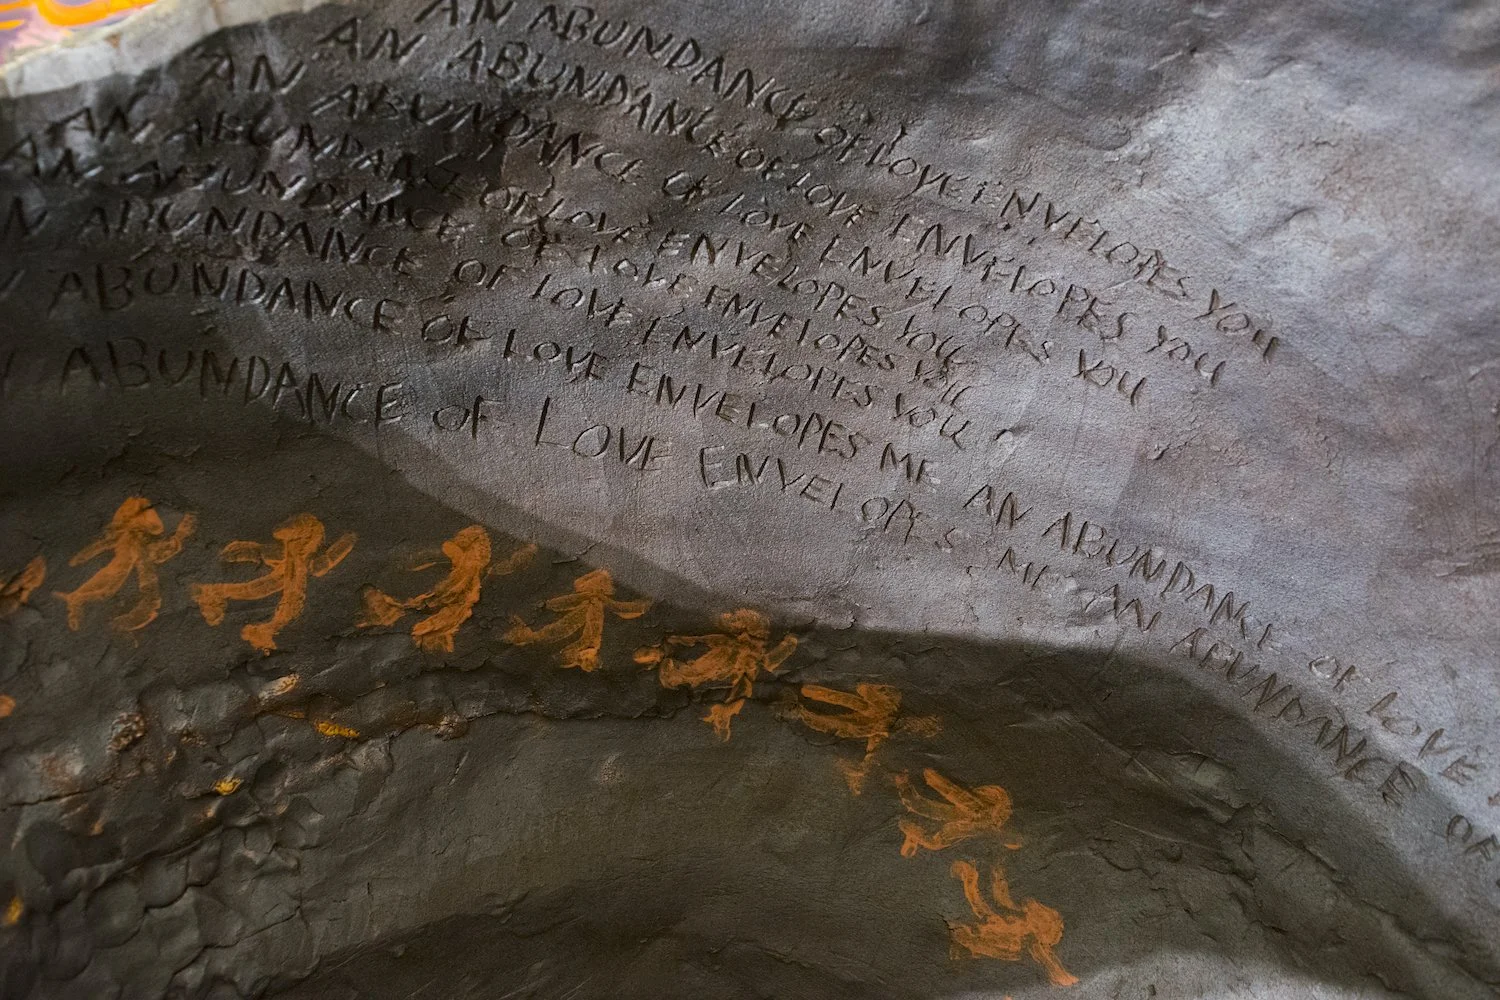 AN ABUNDANCE OF LOVE ENVELOPES YOU
AN ABUNDANCE OF LOVE ENVELOPES YOU
AN ABUNDANCE OF LOVE ENVELOPES YOU
AN ABUNDANCE OF LOVE ENVELOPES YOU
AN ABUNDANCE OF LOVE ENVELOPES YOU
N ABUNDANCE OF LOVE ENVELOPES YOU
ABUNDANCE OF LOVE ENVELOPES ME AN ABUNDANCE OF LOVE
ABUNDANCE OF LOVE ENVELOPES ME AN ABUNDANCE OF